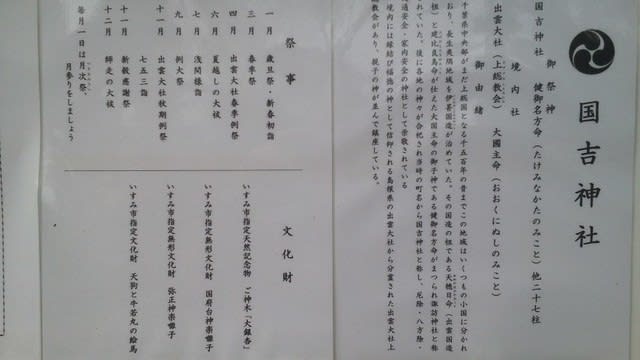 国吉神社
御祭神
国吉神社 健御名方命(たけみなかたのみこと)他二十七柱
境内社
出雲大社(上総教会) 大國主命(おおくにぬしのみこと)
御由緒
千葉県中央部がまだ上総国となる千五百年の昔までこの地域はいくつもの小国に分かれ
おり、長生夷隅地域を伊甚国造が治めていた。その国造の祖である天穂日命(出雲国造
祖)と建比良鳥命が仕えた大国主命の御子神である健御名方命がまつられ諏訪神社と称
されていた。後に各地の神々が合祀され当時の町名から国吉神社と称し、厄除・八方除・
交通安全・家内安全の神社として崇敬されている
境内には縁結び福徳の神として信仰される島根県の出雲大社から分霊された出雲大社上
教会があり、親子の神が並んで鎮座している。
祭事
一月 歳旦祭・新春初詣
三月 春季祭
四月 出雲大社春季例祭
六月 夏越しの大祓
七月 浅間様詣
九月 例大祭
十一月 出雲大社秋期例祭
七五三詣
十一月 新穀感謝祭
十二月 師走の大祓
毎月一日は月次祭、
月参りをしましょう
文化財
いすみ市指定天然記念物 ご神木「大銀杏」
いすみ市指定無形文化財 国府台神楽囃子
いすみ市指定無形文化財 弥正神楽囃子
いすみ市指定文化財 天狗と牛若丸の絵馬